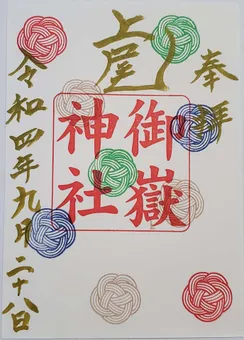 奉拝
御嶽
神社
令和四年九月二十八日